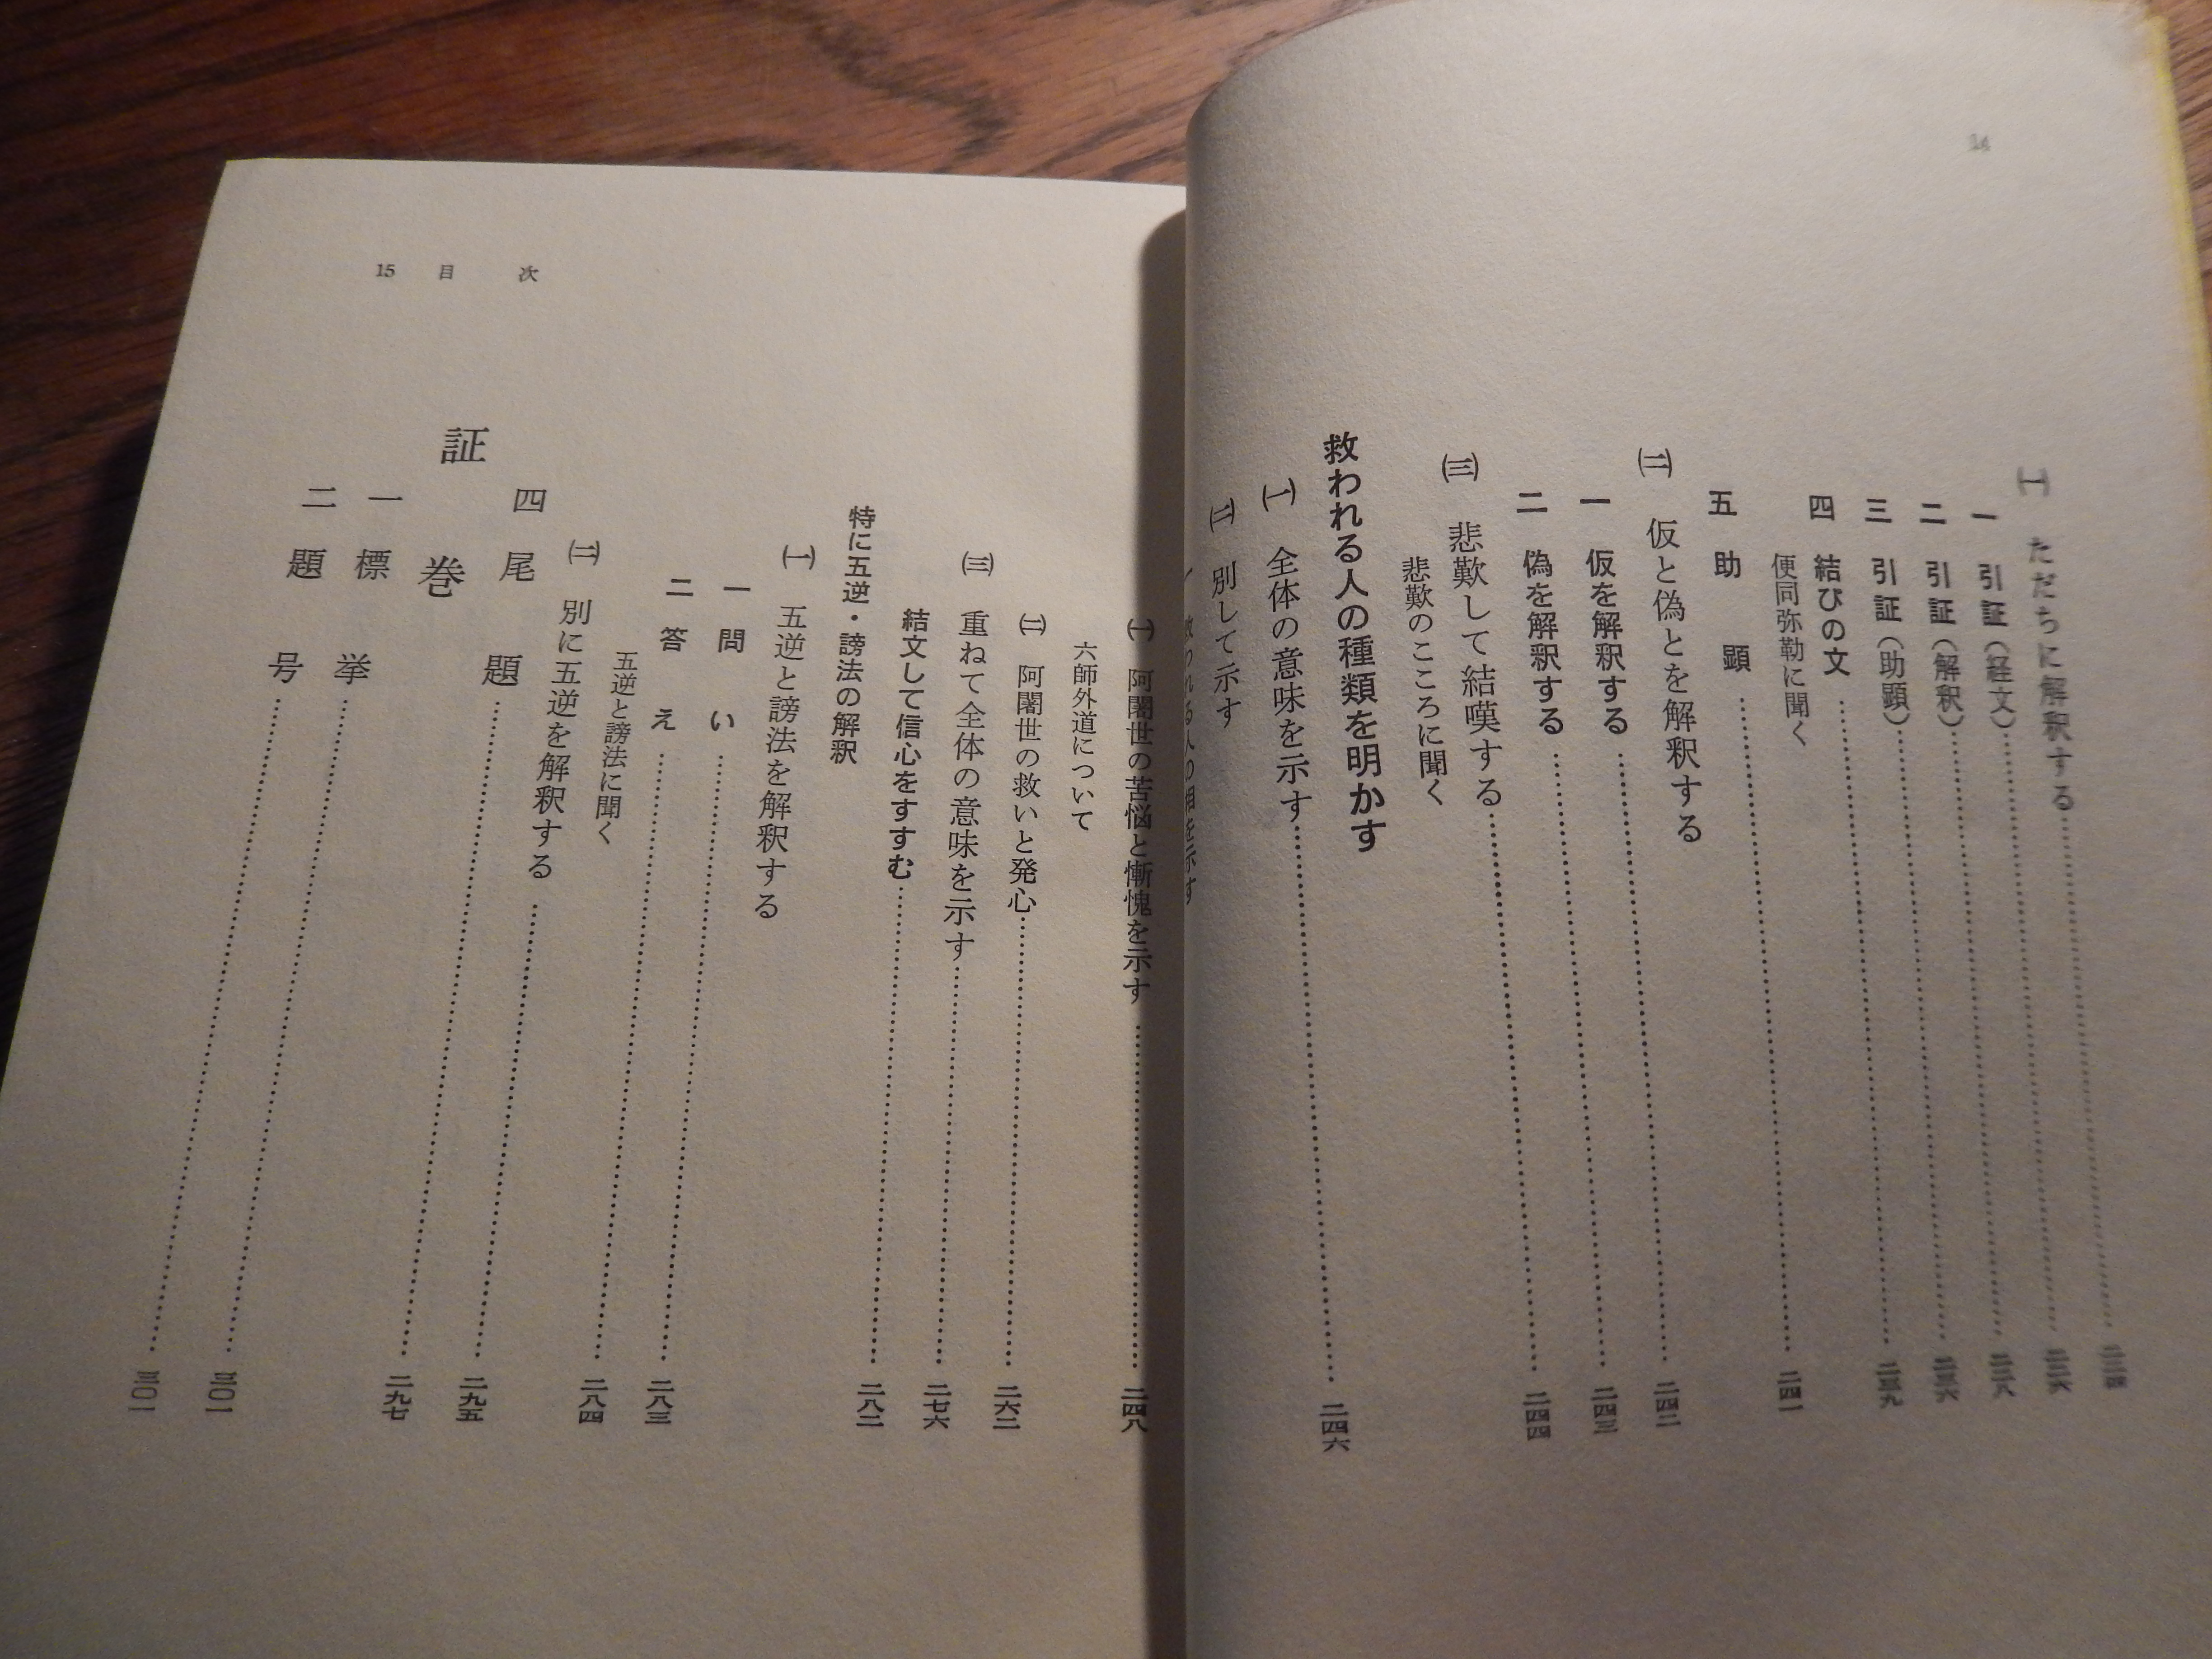 14
㈠ ただちに解釈する
一 引証(経文)
二 引証(解釈)
三 引証(助顕)
四 結びの文
便同弥勒に聞く
五 助顕……二四一
㈡ 仮と偽とを解釈する
一 仮を解釈する
二 偽を解釈する
㈢ 悲歎して結嘆する
悲歎のこころに聞く
救われる人の種類を明かす
㈠ 全体の意味を示す……二四六
㈡ 別して示す
15 目次
㈠ 阿闍世の苦悩と慚愧を示す……二四八
六師外道について
㈡ 阿闍世の救いと発心……二六二
㈢ 重ねて全体の意味を示す……二七六
結文して信心をすすむ……二八二
特に五逆・謗法の解釈
㈠ 五逆と謗法を解釈する
一 問い……二八三
二 答え……二八四
五逆と謗法に聞く
㈡ 別に五逆を解釈する……二九五
四 尾題……二九七
証巻
一 標挙……三〇一
二 題号……三〇一